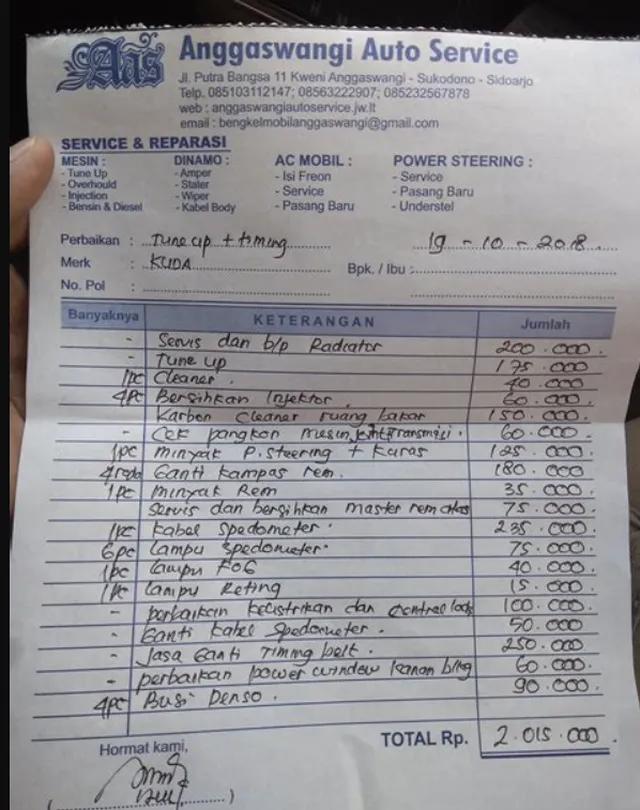 Ans
Anggaswangi Auto Service
Jl. Putra Bangsa 11 Kweni Anggaswangi - Sukodono - Sidoarjo
Telp. 085103112147; 08563222907; 085232567878
web : anggaswangiautoservice.jw.lt
email : bengkelmobilanggaswangi@gmail.com
SERVICE & REPARASI
MESIN : DINAMO : AC MOBIL : POWER STEERING :
- Tune Up - Amper - Isi Freon - Service
- Overhould - Stater - Service - Pasang Baru
- Injection - Wiper - Pasang Baru - Understel
- Bensin & Diesel - Kabel Body
Perbaikan : Tune up + timing 19 - 10 - 2018
Merk : KUDA Bpk. / Ibu :
No. Pol :
Banyaknya KETERANGAN Jumlah
- Servis dan b/p Radiator 200.000
- Tune up 175.000
1pc Cleaner . 40.000
4pc Bersihkan Injektor. 60.000.
Karbon Cleaner ruang bakar 150.000
- Cek pangkon mesin Transmisi. 60.000.
1pc minyak P. Steering + Kuras 125.000
4roda Ganti kampas rem. 180.000
1pc minyak Rem 35.000.
Servis dan bersihkan master rem atas 75.000.
1pc kabel Spedometer. 235.000.
6pc Lampu Spedometer. 75.000.
1pc Lampu FOG 40.000
1pc Lampu Reting 15.000
- perbaikan Kelistrikan dan Central lock 100.000.
- Ganti Kabel Spedometer. 50.000
- Jasa Ganti Timing belt. 250.000
- perbaikan power window kanan blkg 60.000.
4pc Busi Denso. 90.000.
TOTAL Rp. 2.015.000
Hormat kami,